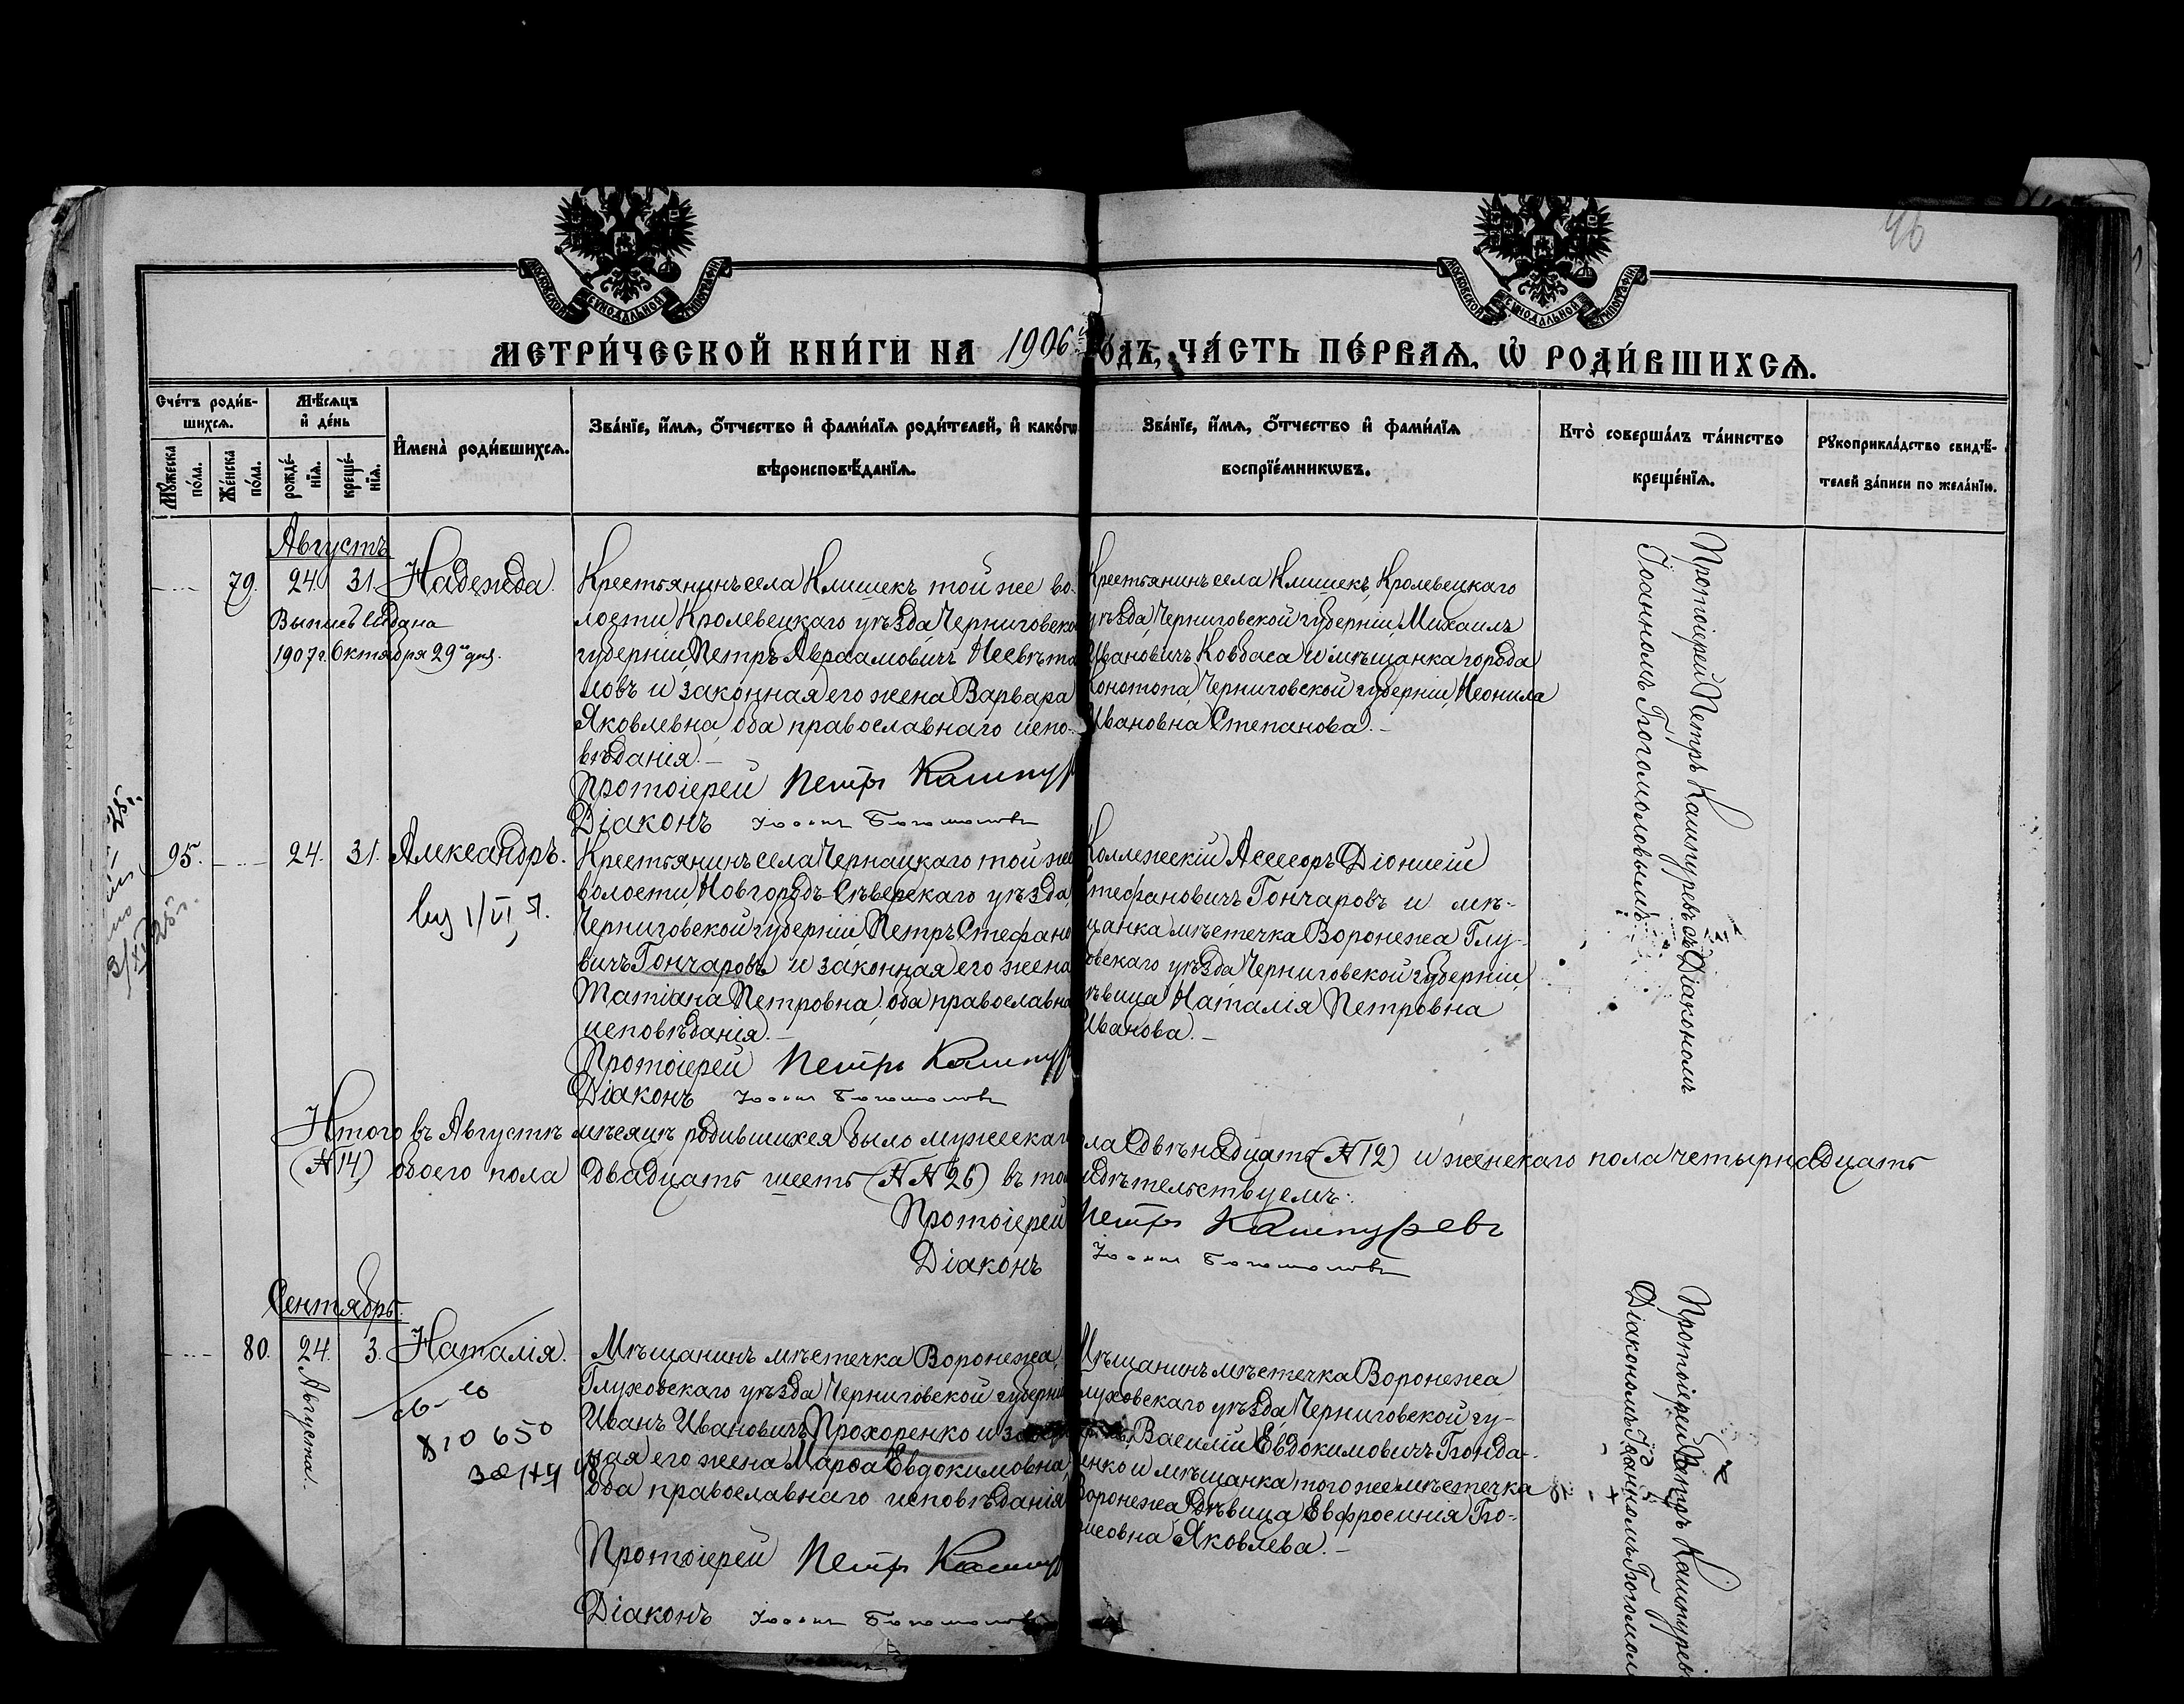 96
МОСКОВСКОЙ СѴНОДАЛЬНОЙ ТИПОГРАФІИ
МОСКОВСКОЙ СѴНОДАЛЬНОЙ ТИПОГРАФІИ
МЕТРИ́ЧЕСКОЙ КНИ́ГИ НА 1906й ГО́ДЪ, ЧА́СТЬ ПЕ́РВАѦ, Ѡ҆ РОДИ́ВШИХСѦ.
Сче́тъ роди́в-
шихсѧ.
Мꙋ́жеска по́ла.
Же́нска по́ла.
Мѣ́сѧцъ
и҆ де́нь
рожде́-
нїѧ.
креще́-
нїѧ.
И҆мена̀ роди́вшихсѧ.
Зва́нїе, и҆́мѧ, ѻ҆́тчество и҆ фами́лїѧ роди́телей, и҆ како́гѡ
вѣроисповѣ́данїѧ.
Зва́нїе, и҆́мѧ, ѻ҆́тчество и҆ фами́лїѧ
воспрїе́мникѡвъ.
Кто̀ соверша́лъ та́инство
креще́нїѧ.
Рꙋкоприкла́дство свидѣ́-
телей за́писи по жела́нїю.
Августъ
79. 24. 31. Надежда.
Выпись выдана
1907 г. Октября 29го дня.
Крестьянинъ села Клишекъ той же во-
лости Кролевецкаго уѣзда Черниговско
губерніи Петръ Авраамовичъ Несвѣта
ловъ и законная его жена Варвара
Яковлевна, оба православнаго испо-
вѣданія.
Протоіерей Петръ Кашпур
Діаконъ Іоаннъ Богомоловъ
Крестьянинъ села Клишекъ, Кролевецкаго
уѣзда Черниговской губерніи, Михаилъ
Ивановичъ Ковбаса и мѣщанка города
Конотопа Черниговской губерніи, Неонила
Ивановна Степанова.
Протоіерей Петръ Кашпуревъ съ Діакономъ
Іоанномъ Богомоловымъ.
95. 24. 31. Александръ.
Крестьянинъ села Чернацкаго той же
волости, Новгородъ-Сѣверскаго уѣзда,
Черниговской губерніи Петръ Стефано
вичъ Гончаровъ и законная его жена
Татіана Петровна, оба православна
исповѣданія.
Протоіерей Петръ Кашпур
Діаконъ Іоаннъ Богомоловъ
Коллежскій Ассесоръ Діонисій
Стефановичъ Гончаровъ и мѣ-
щанка мѣстечка Воронежа Глу-
ховскаго уѣзда Черниговской губерніи,
дѣвица Наталія Петровна
Иванова.
Итого въ Августѣ мѣсяцѣ родившихся было мужескаго пола двѣнадцать (№ 12) и женскаго пола четырнадцать
(№ 14) обоего пола двадцать шесть (№№ 26) въ томъ свидѣтельствуемъ:
Протоіерей Петръ Кашпуревъ
Діаконъ Іоаннъ Богомоловъ
Сентябрь.
80. 24. Августа. 3. Наталія.
810 650
Мѣщанинъ мѣстечка Воронежа,
Глуховскаго уѣзда Черниговской губерніи
Иванъ Ивановичъ Прохоренко и
ная его жена Марѳа Евдокимовна,
оба православнаго исповѣданія
Протоіерей Петръ Кашпур
Діаконъ Іоаннъ Богомоловъ
Мѣщанинъ мѣстечка Воронежа
Глуховскаго уѣзда, Черниговской гу-
Василій Евдокимовичъ Бонда-
ренко и мѣщанка того же мѣстечка
Воронежа, дѣвица Евфросинія Бо-
рисовна Яковлева.
Протоіерей Петръ Кашпурев
Діакономъ Іоанномъ Богомол